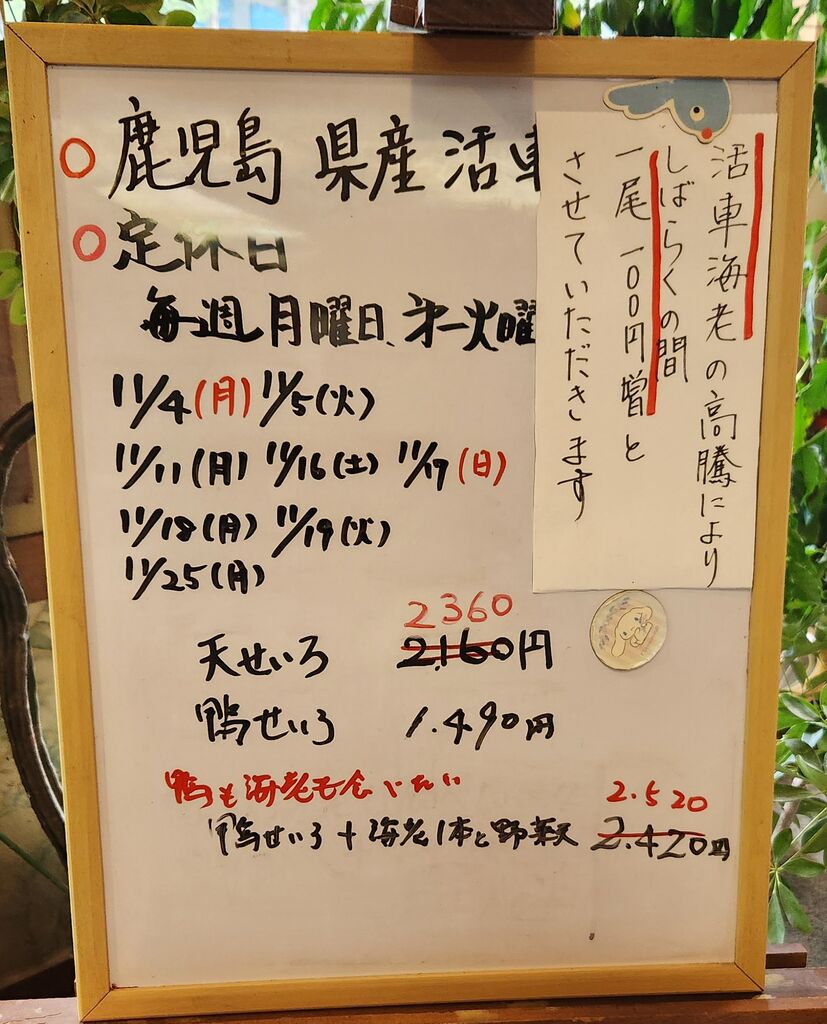 ○鹿児島県産活車
○定休日
毎週月曜日、第一火曜
11/4(月) 11/5(火)
11/11(月) 11/16(土) 11/17(日)
11/18(月) 11/19(火)
11/25(月)
2360
天せいろ 2.160円
鴨せいろ 1.490円
鴨も海老も食いたい
2.520
鴨せいろ+海老1本と野菜天 2.420円
活車海老の高騰により
しばらくの間
一尾一〇〇円増と
させていただきます